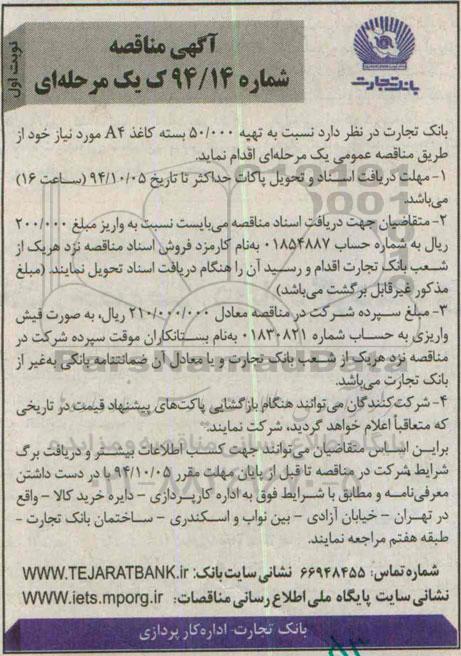 نوبت اول
آگهی مناقصه
شماره ۹۴/۱۴ ک یک مرحله‌ای
بانک تجارت
بانک تجارت در نظر دارد نسبت به تهیه ۵۰/۰۰۰ بسته کاغذ A۴ مورد نیاز خود از
طریق مناقصه عمومی یک مرحله‌ای اقدام نماید.
۱- مهلت دریافت اسناد و تحویل پاکات حداکثر تا تاریخ ۹۴/۱۰/۰۵ (ساعت ۱۶)
می‌باشد.
۲- متقاضیان جهت دریافت اسناد مناقصه می‌بایست نسبت به واریز مبلغ ۲۰۰/۰۰۰
ریال به شماره حساب ۰۱۸۵۴۸۸۷ به‌نام کارمزد فروش اسناد مناقصه نزد هریک از
شعب بانک تجارت اقدام و رسید آن را هنگام دریافت اسناد تحویل نمایند. (مبلغ
مذکور غیرقابل برگشت می‌باشد)
۳- مبلغ سپرده شرکت در مناقصه معادل ۲۱۰/۰۰۰/۰۰۰ ریال، به صورت فیش
واریزی به حساب شماره ۰۱۸۳۰۸۲۱ به‌نام بستانکاران موقت سپرده شرکت در
مناقصه نزد هریک از شعب بانک تجارت و یا معادل آن ضمانتنامه بانکی به‌غیر از
بانک تجارت می‌باشد.
۴- شرکت‌کنندگان می‌توانند هنگام بازگشایی پاکت‌های پیشنهاد قیمت در تاریخی
که متعاقباً اعلام خواهد گردید، شرکت نمایند.
براین اساس متقاضیان می‌توانند جهت کسب اطلاعات بیشتر و دریافت برگ
شرایط شرکت در مناقصه تا قبل از پایان مهلت مقرر ۹۴/۱۰/۰۵ با در دست داشتن
معرفی‌نامه و مطابق با شرایط فوق به اداره کارپردازی - دایره خرید کالا - واقع
در تهران - خیابان آزادی - بین نواب و اسکندری - ساختمان بانک تجارت -
طبقه هفتم مراجعه نمایند.
شماره تماس: ۶۶۹۴۸۴۵۵ نشانی سایت بانک: WWW.TEJARATBANK.ir
نشانی سایت پایگاه ملی اطلاع رسانی مناقصات: WWW.iets.mporg.ir
بانک تجارت- اداره کار پردازی
ParsNamadData
پایگاه اطلاع رسانی مناقصه و مزایده